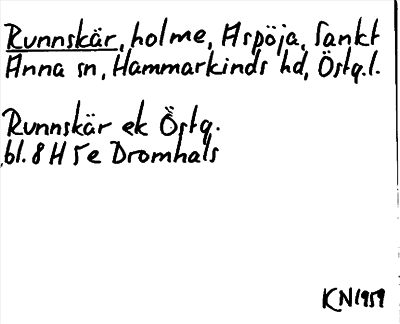 Runnskär, holme, Aspöja, Sankt
Anna sn, Hammarkinds hd, Östg.l.
Runnskär ek Östg.
bl. 8 H 5e Dromhals
KN1959